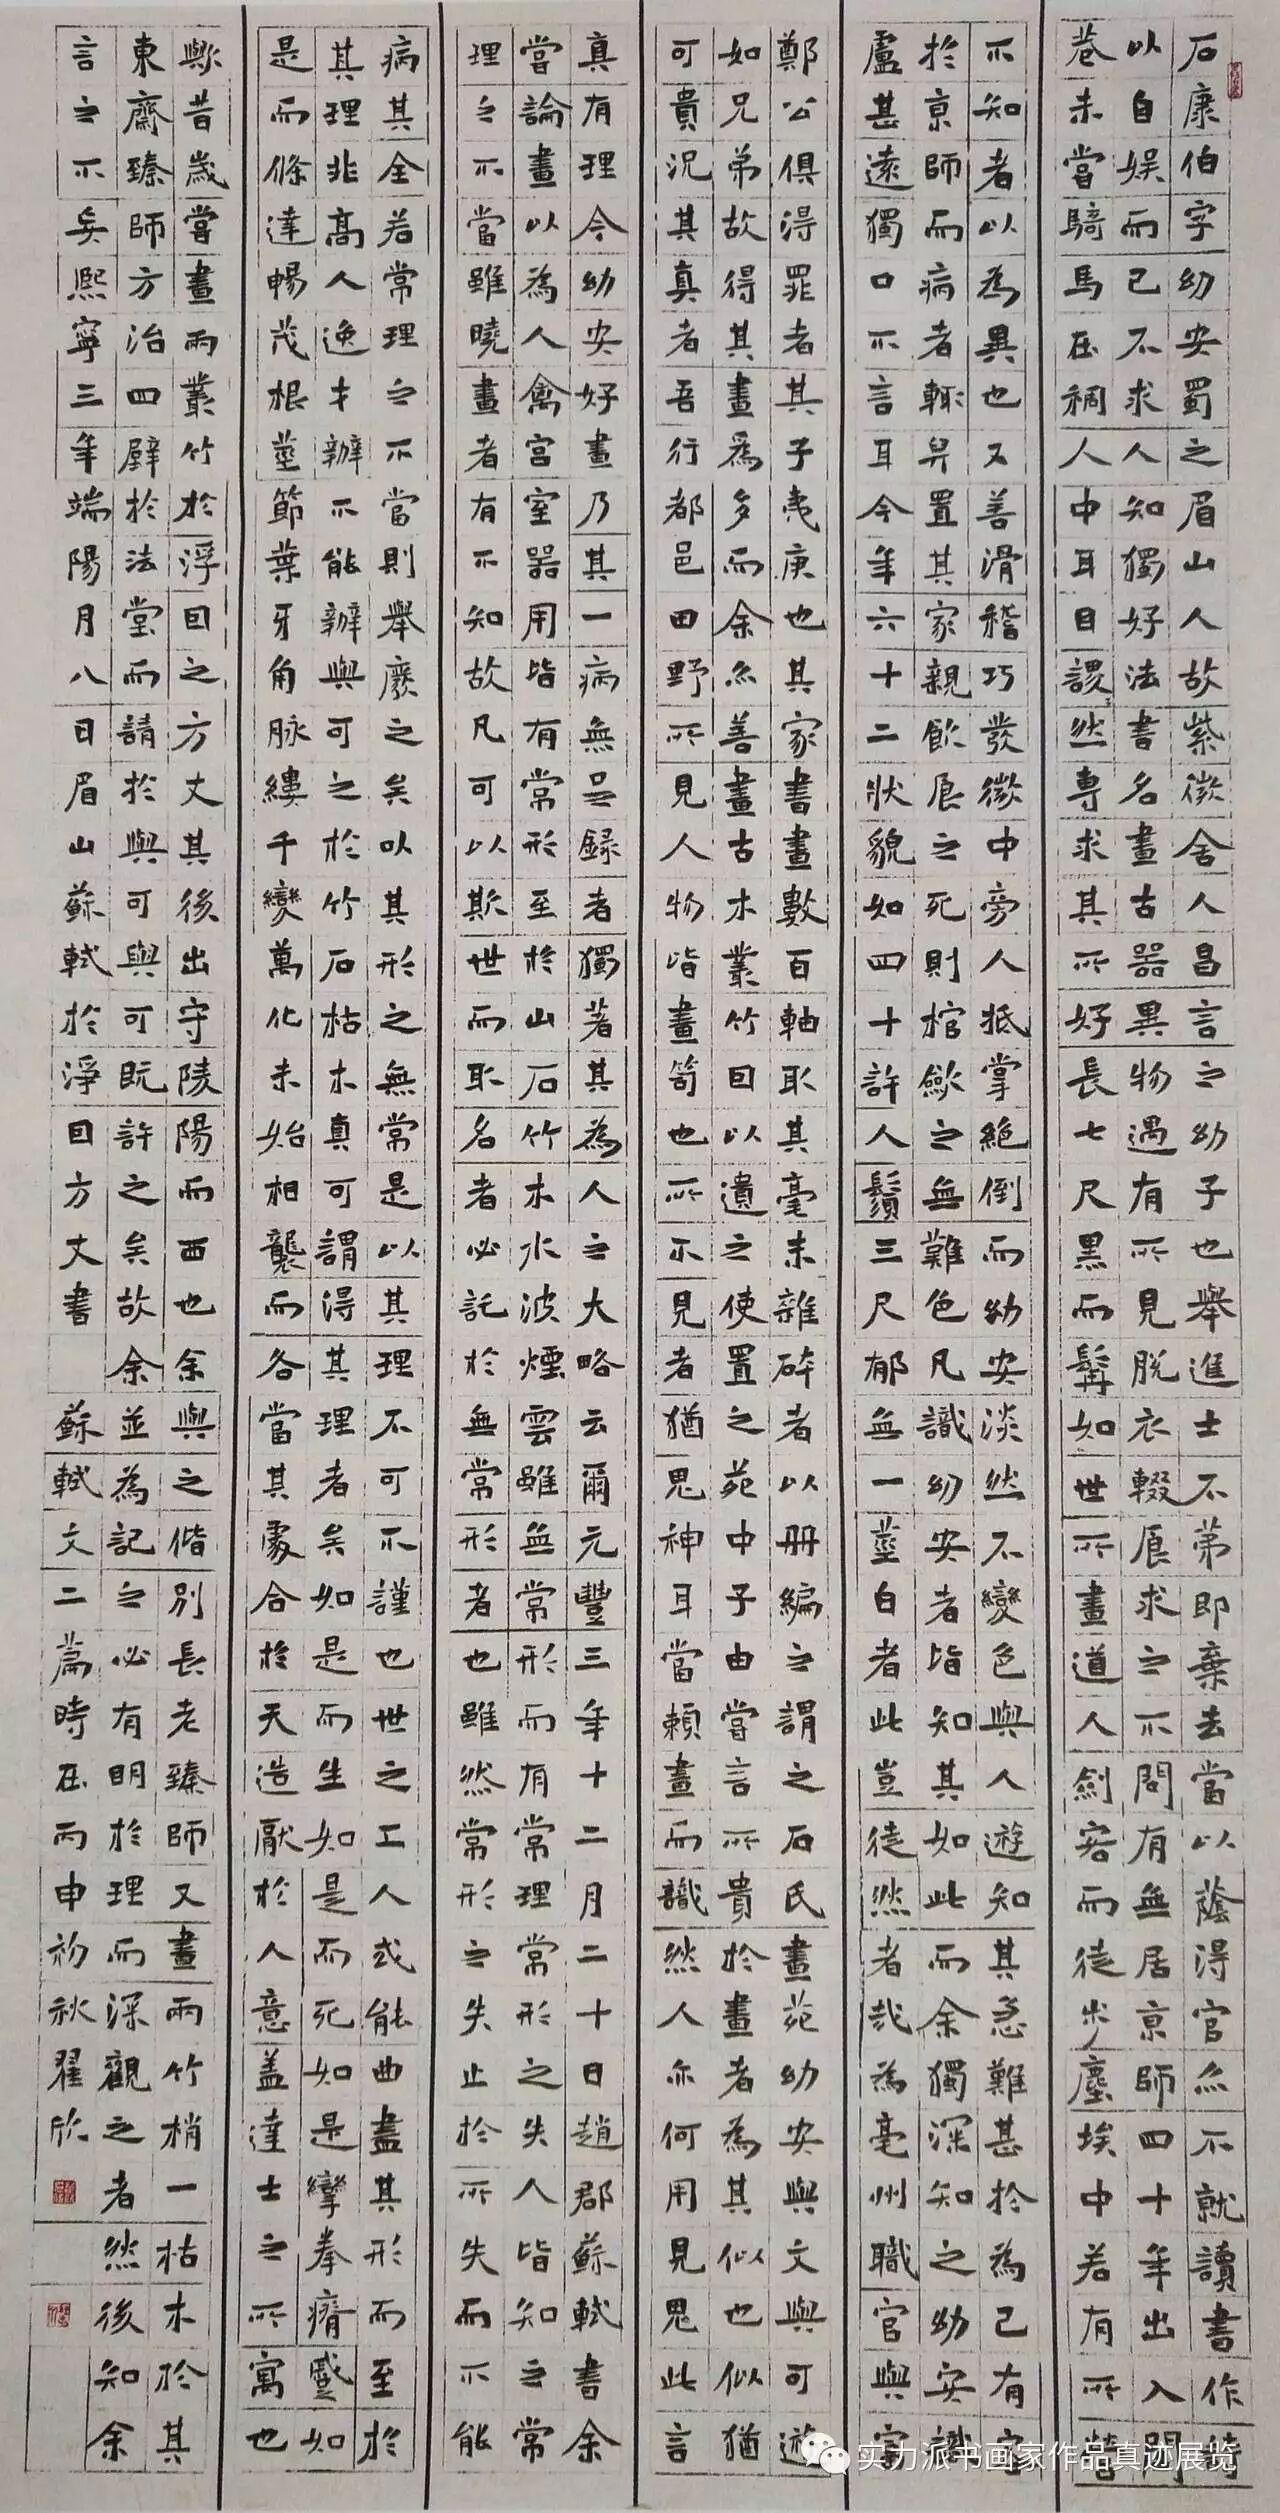 石康伯字幼安蜀之眉山人故紫微舍人昌言之幼子也舉進士不第即棄去當以蔭得官亦不就讀書作詩
以自娛而已不求人知獨好法書名畫古器異物遇有所見脫衣輟食求之不問有無居京師四十年出入閭
巷未嘗騎馬在稠人中耳目謖然專求其所好長七尺黑而髯如世所畫道人劍客而徒步塵埃中若有所營
不知者以為異也又善滑稽巧發微中旁人抵掌絕倒而幼安淡然不變色與人遊知其急難甚於為己有客
於京師而病者輒舁置其家親飲食之死則棺斂之無難色凡識幼安者皆知其如此而余獨深知之幼安識
慮甚遠獨口不言耳今年六十二狀貌如四十許人鬚三尺郁無一莖白者此豈徒然者哉為亳州職官與富
鄭公俱得罪者其子夷庚也其家書畫數百軸取其毫末雜碎者以冊編之謂之石氏畫苑幼安與文與可遊
如兄弟故得其畫為多而余亦善畫古木叢竹因以遺之使置之苑中子由嘗言所貴於畫者為其似也似猶
可貴況其真者吾行都邑田野所見人物皆畫笥也所不見者猶鬼神耳當賴畫而識然人亦何用見鬼此言
真有理今幼安好畫乃其一病無足錄者獨著其為人之大略云爾元豐三年十二月二十日趙郡蘇軾書余
嘗論畫以為人禽宮室器用皆有常形至於山石竹木水波煙雲雖無常形而有常理常形之失人皆知之常
理之不當雖曉畫者有不知故凡可以欺世而取名者必託於無常形者也雖然常形之失止於所失而不能
病其全若常理之不當則舉廢之矣以其形之無常是以其理不可不謹也世之工人或能曲盡其形而至於
其理非高人逸才辦不能辦與可之於竹石枯木真可謂得其理者矣如是而生如是而死如是攣拳瘠蹙如
是而條達暢茂根莖節葉牙角脉縷千變萬化未始相襲而各當其處合於天造厭於人意蓋達士之所寓也
歟昔歲嘗畫兩叢竹於淨因之方丈其後出守陵陽而西也余與之偕別長老臻師又畫兩竹梢一枯木於其
東齋臻師方治四壁於法堂而請於與可與可既許之矣故余並為記之必有明於理而深觀之者然後知余
言之不妄熙寧三年端陽月八日眉山蘇軾於淨因方丈書 蘇軾文二篇時在丙申初秋翟欣
实力派书画家作品真迹展览